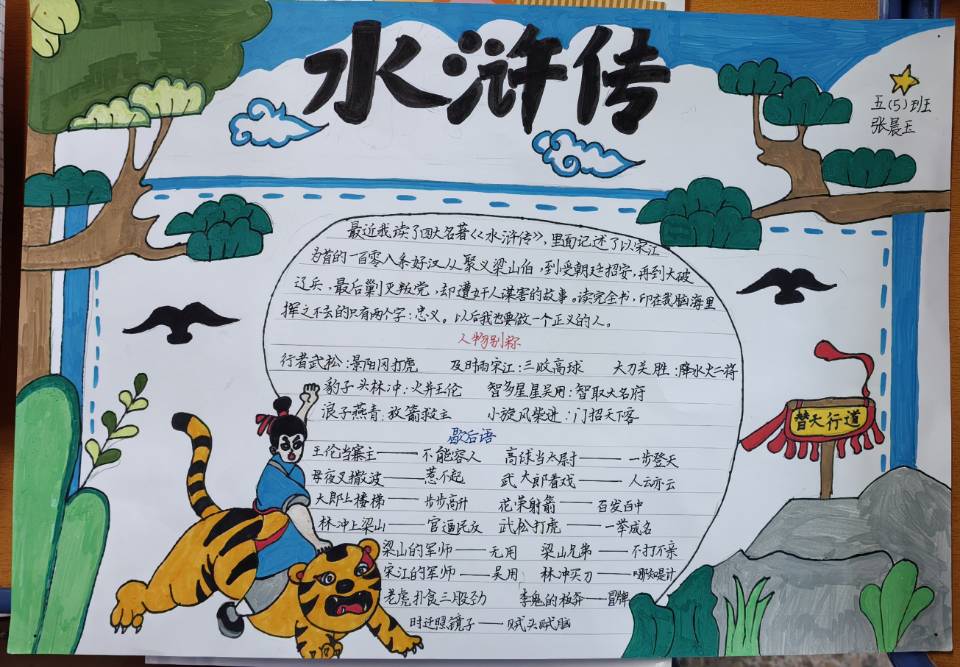 水浒传
五(5)班
张晨玉
最近我读了四大名著《水浒传》,里面记述了以宋江
为首的一百零八条好汉从聚义梁山伯,到受朝廷招安,再到大破
辽兵,最后剿灭叛党,却遭奸人谋害的故事。读完全书,印在我脑海里
挥之不去的只有两个字:忠义。以后我也要做一个正义的人。
人物别称
行者武松:景阳冈打虎 及时雨宋江:三败高球 大刀关胜:降水火二将
豹子头林冲:火并王伦 智多星吴用:智取大名府
浪子燕青:救主 小旋风柴进:门招天下客
替天行道
歇后语
王伦当寨主——不能容人 高球当太尉——一步登天
母夜叉撒泼——惹不起 武大郎看戏——人云亦云
大郎上楼梯——步步高升 花荣射箭——百发百中
林冲上梁山——官逼民反 武松打虎——一举成名
梁山的军师——无用 梁山兄弟——不打不亲
宋江的军师——吴用 林冲买刀——哪知是计
老虎扑食三股劲 李鬼的板斧——冒牌
时迁照镜子——贼头贼脑